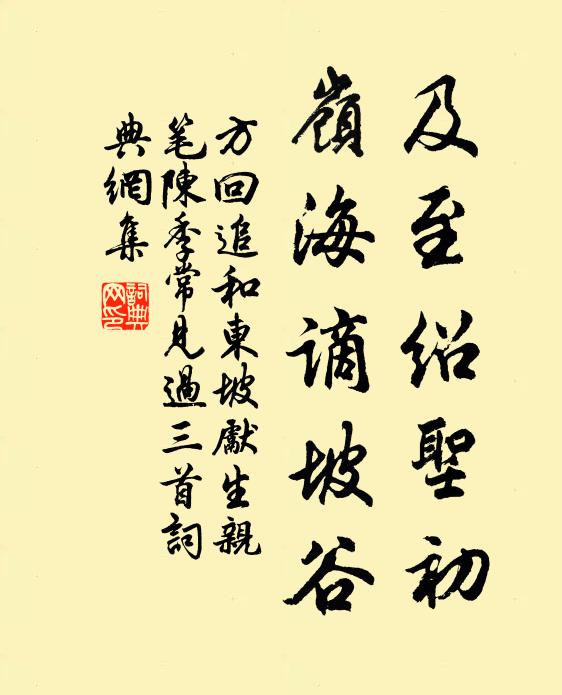 及至绍聖初
嶺海謫坡谷
方回追和東坡獻生親
笔陳季常見過三首詞
典網集
詞典網印